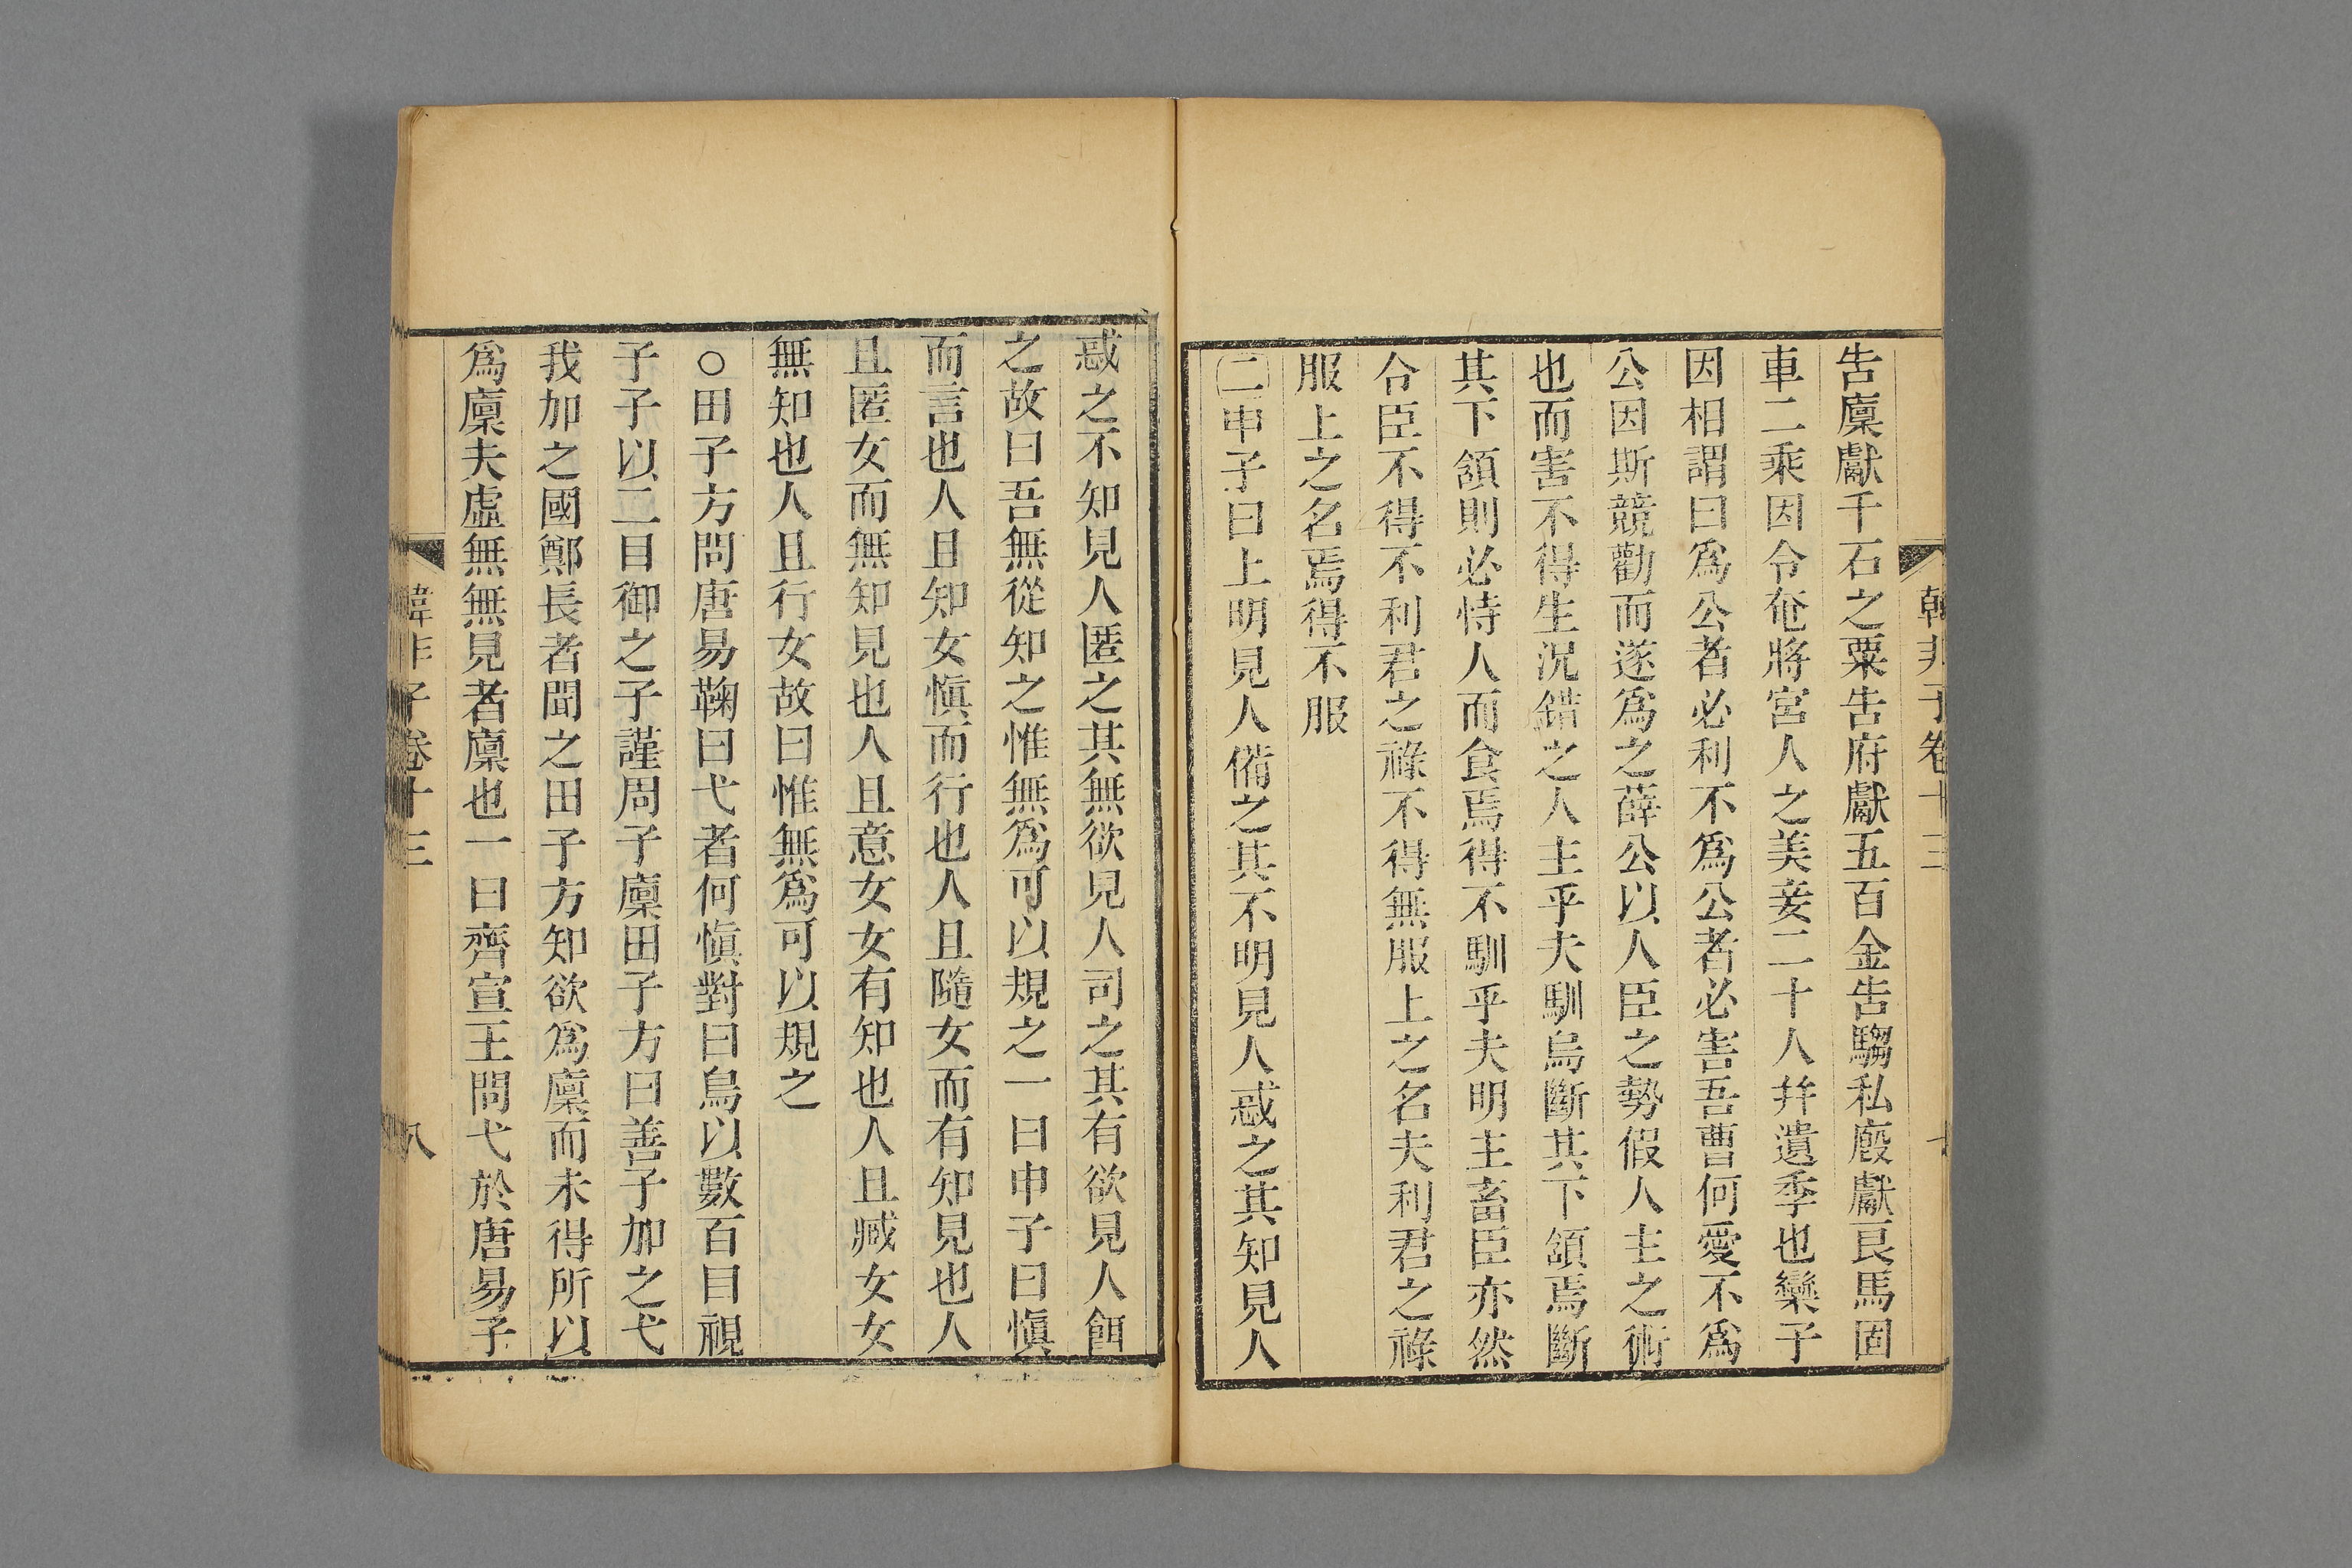 韓非子卷十三
告廩獻千石之粟告府獻五百金告騶私廄獻良馬固
車二乘因令奄將宮人之美妾二十人并遺季也欒子
因相謂曰爲公者必利不爲公者必害吾曹何愛不爲
公因斯競勸而遂爲之薛公以人臣之勢假人主之術
也而害不得生況錯之人主乎夫馴烏斷其下頷焉斷
其下頷則必恃人而食焉得不馴乎夫明主畜臣亦然
令臣不得不利君之祿不得無服上之名夫利君之祿
服上之名焉得不服
二申子曰上明見人備之其不明見人惑之其知見人
惑之不知見人匿之其無欲見人司之其有欲見人餌
之故曰吾無從知之惟無爲可以規之一曰申子曰愼
而言也人且知女愼而行也人且隨女而有知見也人
且匿女而無知見也人且意女女有知也人且臧女女
無知也人且行女故曰惟無爲可以規之
○田子方問唐易鞠曰弋者何愼對曰鳥以數百目視
子子以二目御之子謹周子廩田子方曰善子加之弋
我加之國鄭長者聞之田子方知欲爲廩而未得所以
爲廩夫虛無無見者廩也一曰齊宣王問弋於唐易子
韓非子卷十三
八